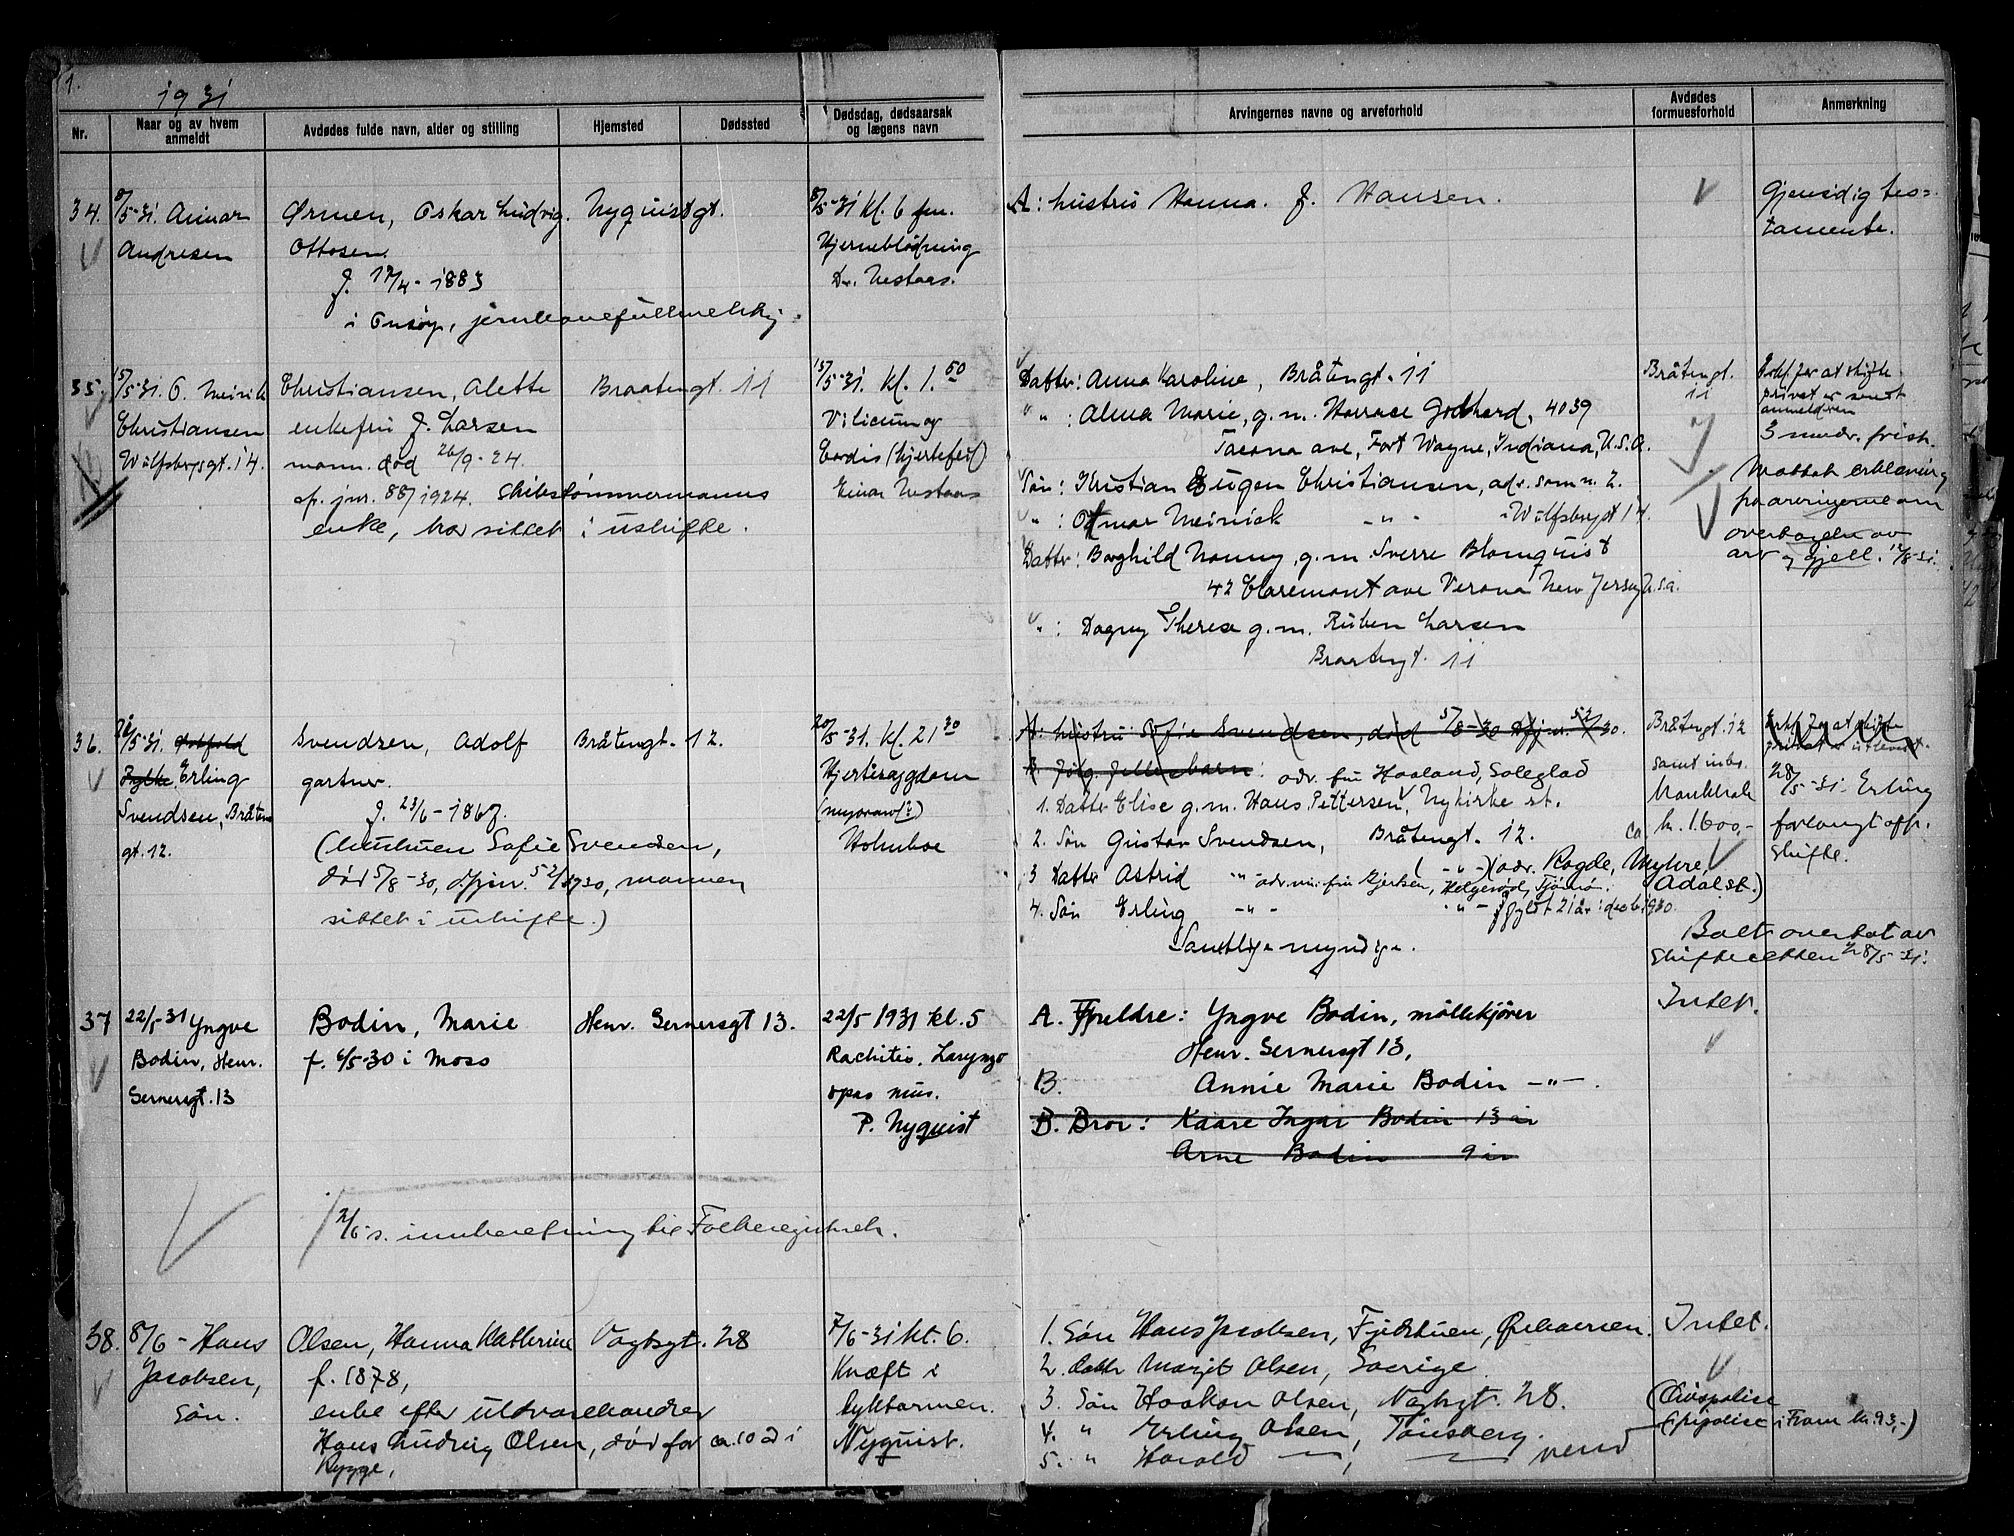 1.
1931
Nr.
Naar og av hvem anmeldt
Avdødes fulde navn, alder og stilling
Hjemsted
Dødssted
Dødsdag, dødsaarsak og lægens navn
Arvingernes navne og arveforhold
Avdødes formuesforhold
Anmerkning
34.
8/5-31. Annar
Andresen
Ørmen, Oskar Ludvig
Ottosen.
f. 17/4-1883
i Onsøy, jernbanefullmektig.
Nyquistgt.
8/5-31 kl. 6 fm.
Hjerneblødning
Dr. Nestaas.
A: hustru Hanna f. Hansen.
Gjensidig tes-
tamente.
35.
15/5-31. O. Meinik
Christiansen
Wulfsbergsgt. 14.
Christiansen, Alette
enkefru f. Larsen
mann. død 26/9-24.
cfr. jnr. 88/1924. Skibstømmermanns
enke, har sittet i uskifte.
Braatengt. 11
15/5-31. kl. 1.50
Vilicum og
Cordis (hjertefeil)
Einar Nestaas
Datter: Anna Karoline, Bråtengt. 11
" : Alma Marie, g.m. Horrace Godhard, 4039
Tacona ave, Fort Wayne, Indiana, U.S.A.
Søn: Kristian Eugen Christiansen, adr. som n. 2.
" : Otmar Meinick -"- Wulfsbergst 14.
Datter: Borghild Nanny, g.m. Sverre Blomquist
42 Claremont ave Verona New Jersey U.S.A.
" : Dagny Therese g.m. Ruben Larsen
Braatengt. 11
Bråtengt.
11
Erkl. for at skifte
privat er sendt
anmelderen
3 mndr. frist.
Mottat erklæring
fra arvingerne om
overtagelse av
arv og gjell. 12/8-31.
36.
Østfold
Fylke Erling
Svendsen, Bråten
gt. 12.
Svendsen, Adolf
gartner.
f. 23/6-1867.
(hustruen Sofie Svendsen,
død 5/8-30, cfr. jnr. 52/1930, mannen
sittet i uskifte.)
Bråtengt. 12.
20/5-31. kl. 21 30
Hjertesygdom
(myocard(?))
Holmboe
A: hustru Sofie Svendsen, død 5/8-30 cfr. jnr. 52/30.
B. Jøig. fellesbarn: adr. fru Haaland, Soleglad
1. Datter Elise g.m. Hans Pettersen, Nykirke st.
2. Søn Gustav Svendsen, Bråtengt. 12.
3 Datter Astrid -"- (-"-) (adr. Rogde, Myhre,
Adalst.)
adr. nu fru Gjertsen, Helgerød, Tjømø.
4. Søn Erling -"- -"- fylt 21 år i dec b. 1930.
Samtlige myndige.
Bråtengt 12
samt inbo.
Bankbok
ca kr. 1600,-
Erkl. for at skifte
privat er utlevert.
28/5-31. Erling
forlangt off.
skifte.
Boet overtat av
skifteretten 28/5-31.
37
22/5-31 Yngve
Bodin, Henr.
Gernersgt. 13
Bodin, Marie
f. 6/5-30 i Moss
Henr. Gernersgt 13.
22/5 1931 kl. 5
Rachitis. Laryngo
spas mus.
P. Nyquist
A. Foreldre: Yngve Bodin, møllekjører
Henr. Gernersgt 13,
B. Annie Marie Bodin -"-.
B. Bror: Kaare Ingar Bodin 13 år
Arne Bodin 9 år
Intet.
2/6 s. innberetning til Folkeregistret.
38.
8/6 - Hans
Jacobsen,
søn.
Olsen, Hanna Kathrine
f. 1878,
enke efter utdvarehandler
Hans Ludvig Olsen, død for ca. 10 år i
Rygge,
Vogtsgt. 28
7/6-31 kl. 6.
Kræft i
tyktarmen.
Nyquist.
1. Søn Hans Jacobsen, Fjeldstuen, Ørehavnen.
2. datter Margit Olsen, Sverige
3. Søn Haakon Olsen, Vogtsgt. 28.
4. " Erling Olsen, Tønsberg.
5. " Harald — , — vend
Intet.
(Livspolise
(fripolise i Fram kr. 93,-)